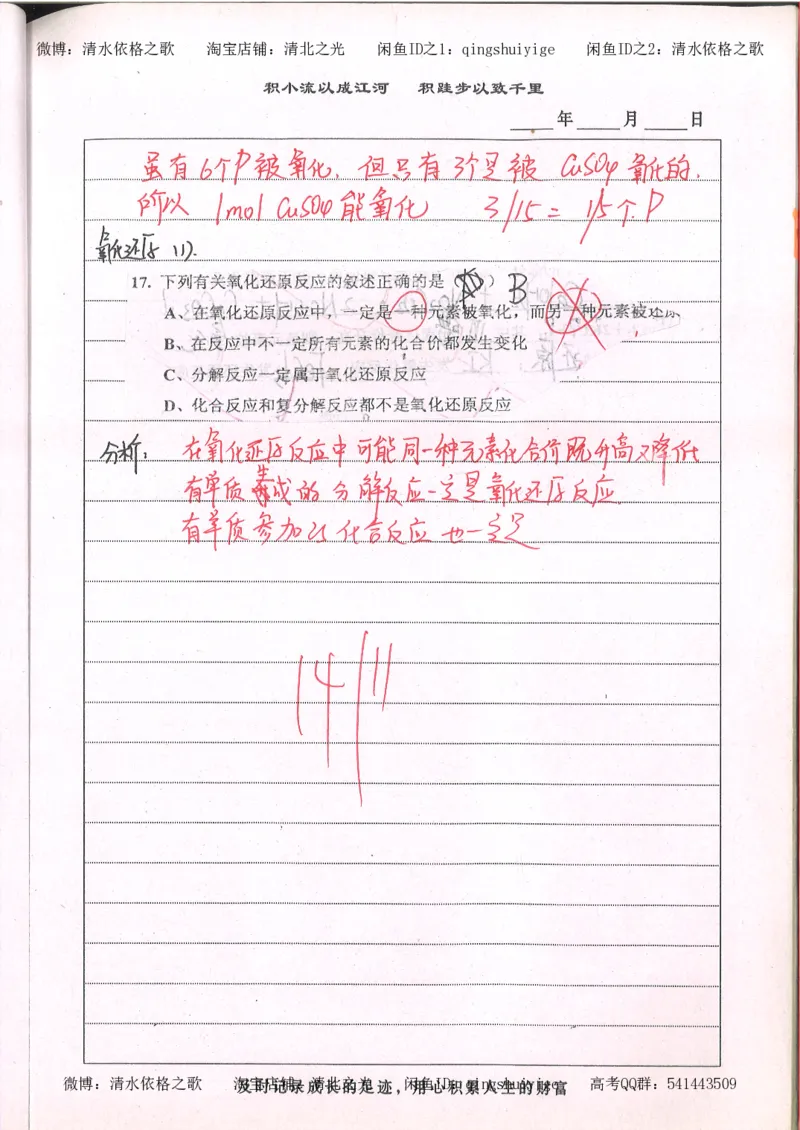 微博：清水依格之歌 淘宝店铺：清北之光 闲鱼ID之1：qingshuiyige 闲鱼ID之2：清水依格之歌
积小流以成江河 积跬步以致千里
年 月 日
虽有6个P被氧化，但只有3个是被 CuSO4 氧化的.
所以 1mol CuSO4 能氧化 3/15 = 1/5个P
氧化还原 (1).
17. 下列有关氧化还原反应的叙述正确的是（ ） B
A、在氧化还原反应中，一定是一种元素被氧化，而另一种元素被还原
B、在反应中不一定所有元素的化合价都发生变化
C、分解反应一定属于氧化还原反应
D、化合反应和复分解反应都不是氧化还原反应
分析： 在氧化还原反应中可能同一种元素化合价既升高又降低
有单质生成的分解反应一定是氧化还原反应
有单质参加的化合反应也一定是
14/11
微博：清水依格之歌 淘宝店铺：清北之光 闲鱼ID：qingshuiyige 高考QQ群：541443509
及时记录成长的足迹，用心积累人生的财富